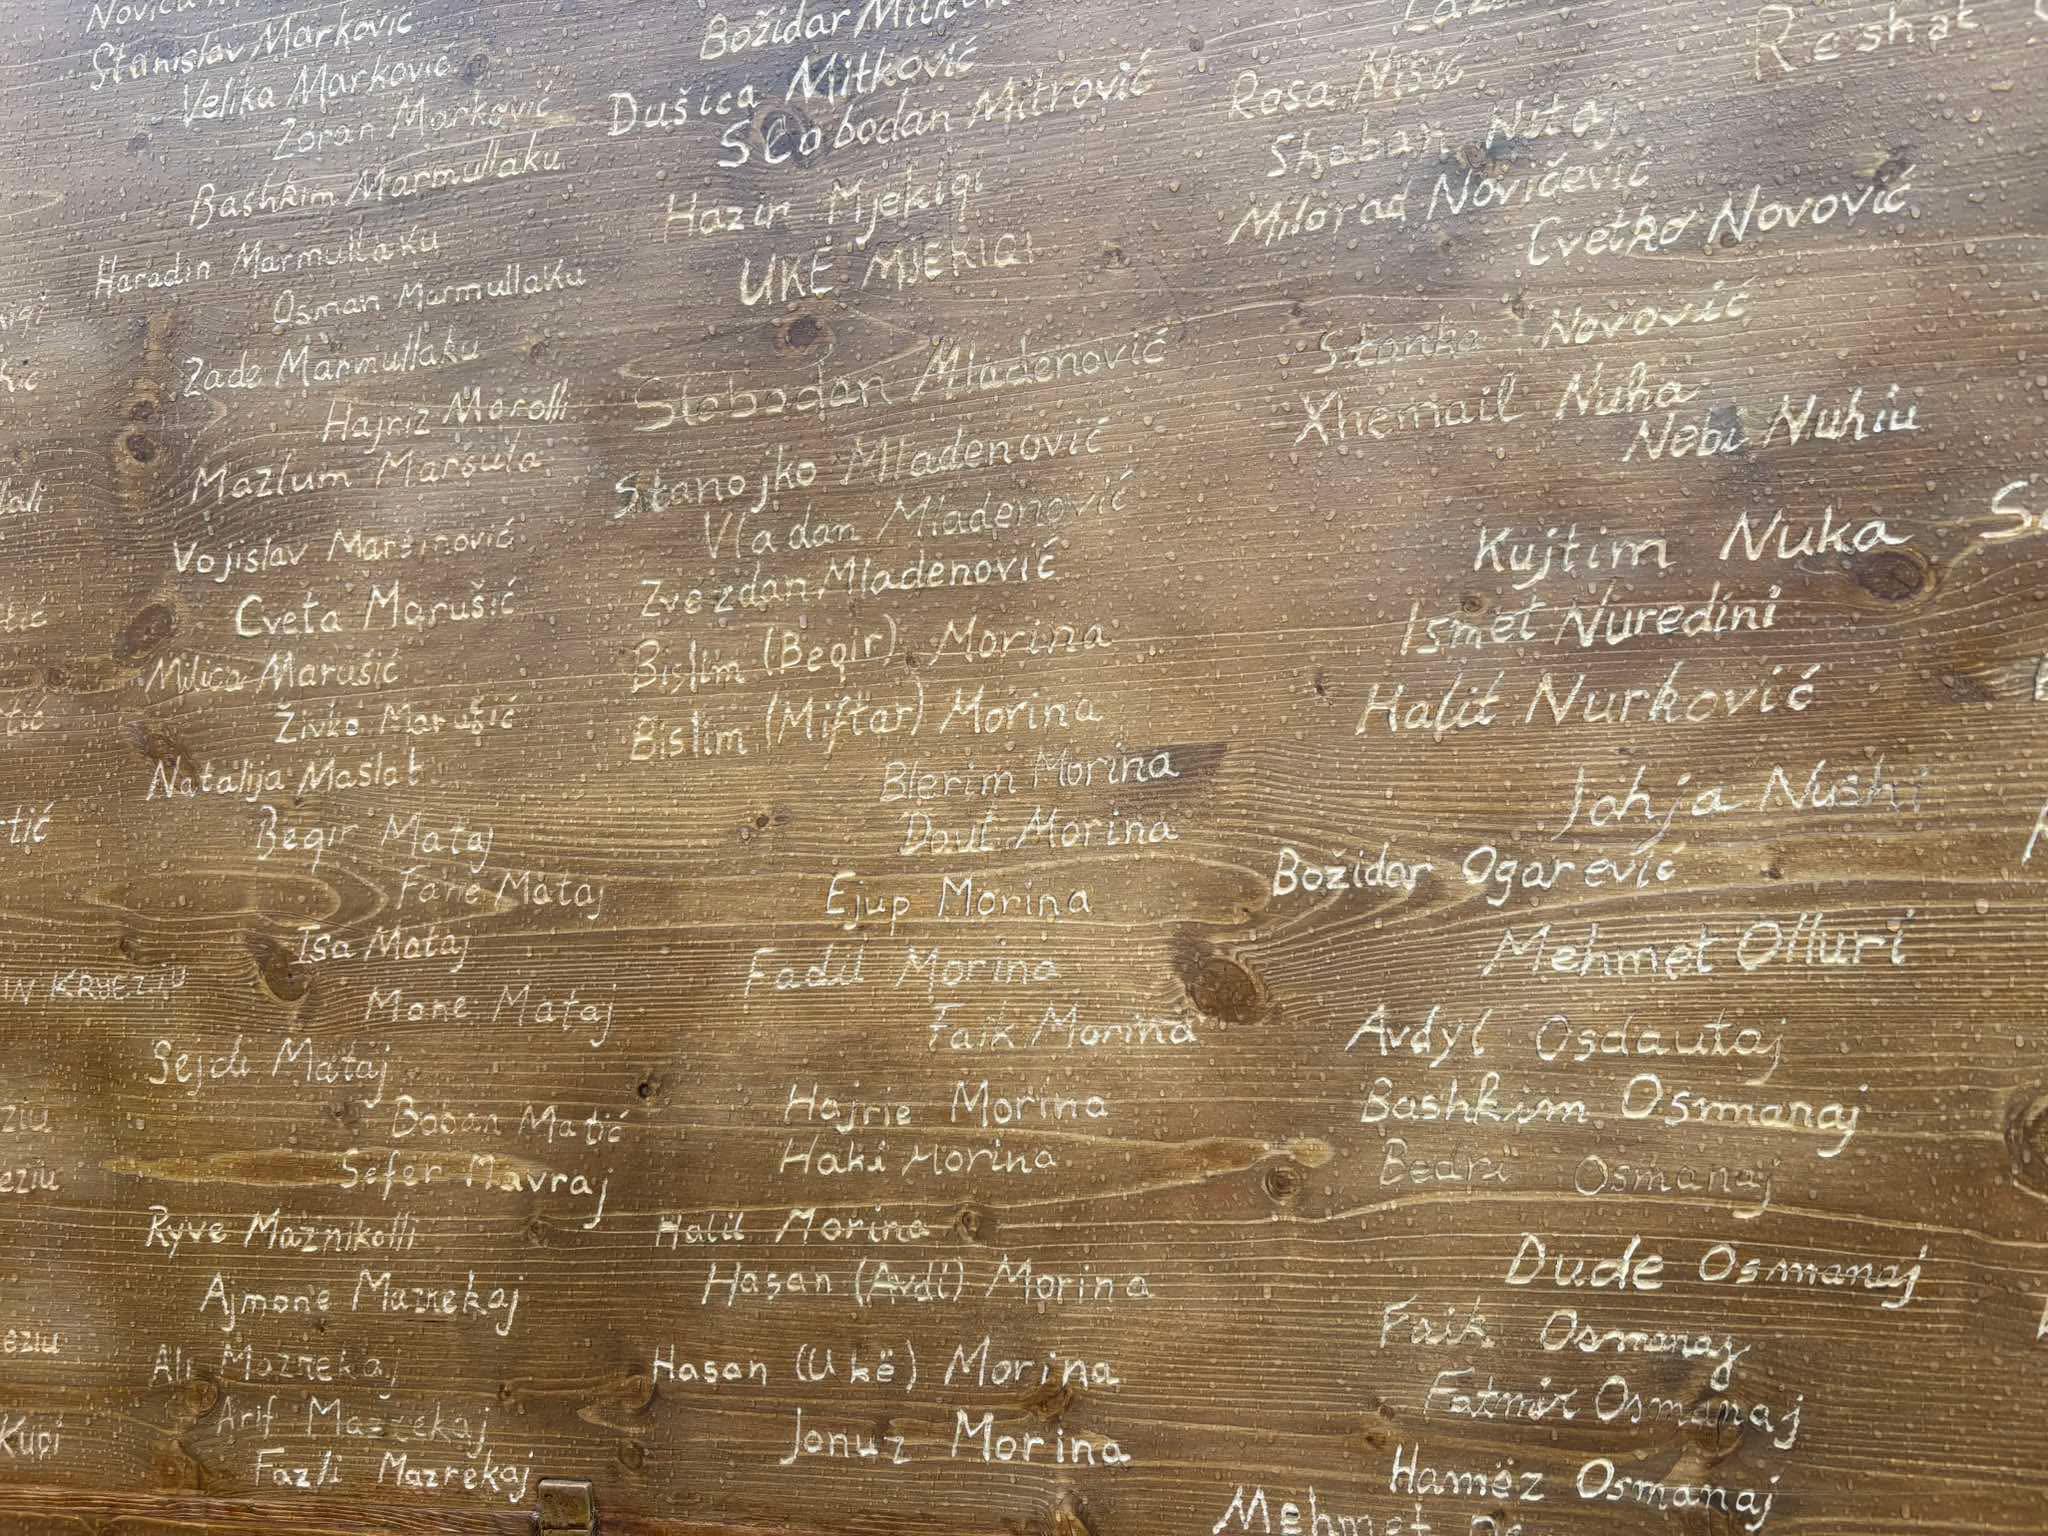 Stanislav Marković
Velika Marković
Zoran Marković
Bashkim Marmullaku
Haradin Marmullaku
Osman Marmullaku
Zade Marmullaku
Hajriz Marolli
Mazlum
Vojislav
Cveta Marušić
Milica Marušić
Marušić
Natalija Maslat
Beqir Mataj
Mataj
Isa Mataj
Mone Mataj
Sejdi Mataj
Boban Matić
Sefer Mavraj
Ryve Maznikolli
Ajmone Mazrekaj
Ali Mazrekaj
Arif Mazrekaj
Fazli Mazrekaj
KRYEZIU
Kupi
Božidar
Dušica Mitković
Slobodan Mitrović
Hazir Mjekiqi
UKË MJEKIQI
Slobodan Mladenović
Stanojko Mladenović
Vladan Mladenović
Zvezdan Mladenović
Bislim (Beqir) Morina
Bislim (Miftar) Morina
Blerim Morina
Daut Morina
Ejup Morina
Fadil Morina
Faik Morina
Hajrie Morina
Haki Morina
Halil Morina
Hasan (Avdi) Morina
Hasan (Ukë) Morina
Jonuz Morina
Rosa Nišić
Shaban Nitaj
Milorad Novićević
Cvetko Novović
Stanka Novović
Xhemail Nuha
Nebi Nuhiu
Kujtim Nuka
Ismet Nuredini
Halit Nurković
Jahja Nushi
Božidar Ogarević
Mehmet Olluri
Avdyl Osdautaj
Bashkim Osmanaj
Bedri Osmanaj
Dude Osmanaj
Faik Osmanaj
Fatmir Osmanaj
Hamëz Osmanaj
Mehmet
Reshat